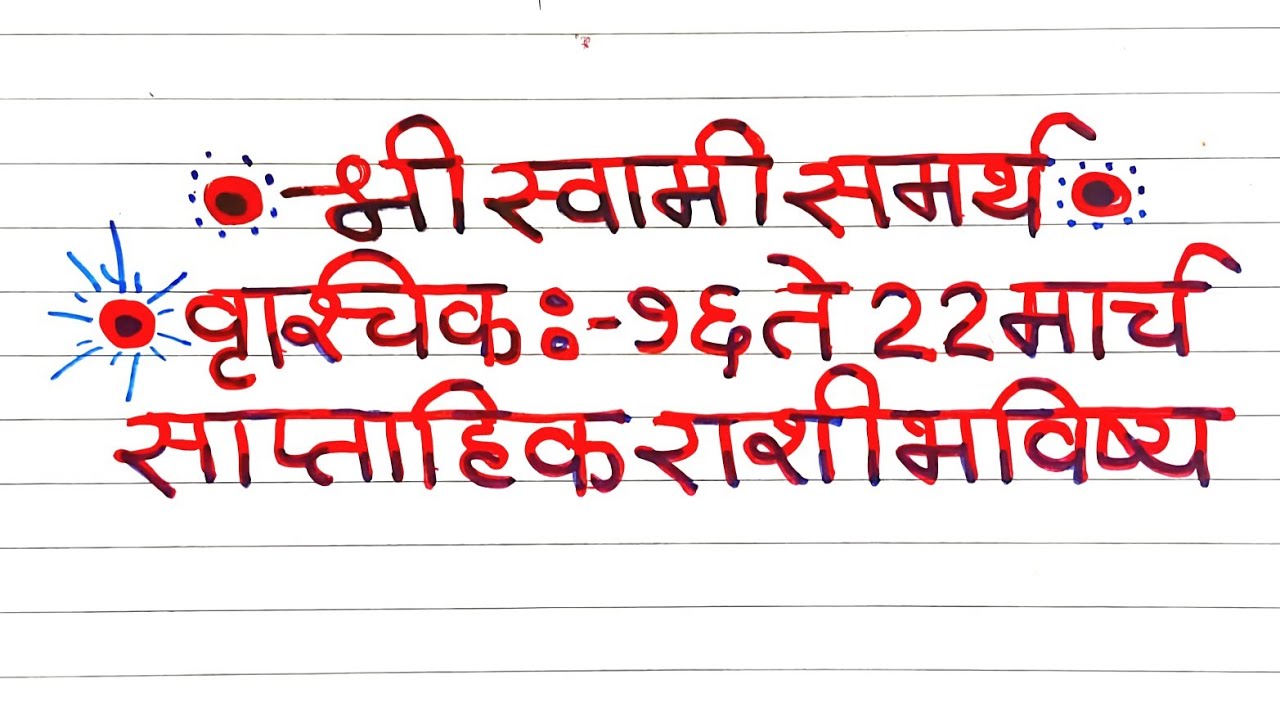 श्री स्वामी समर्थ
वृश्चिक :- १६ ते 22 मार्च
साप्ताहिक राशीभविष्य